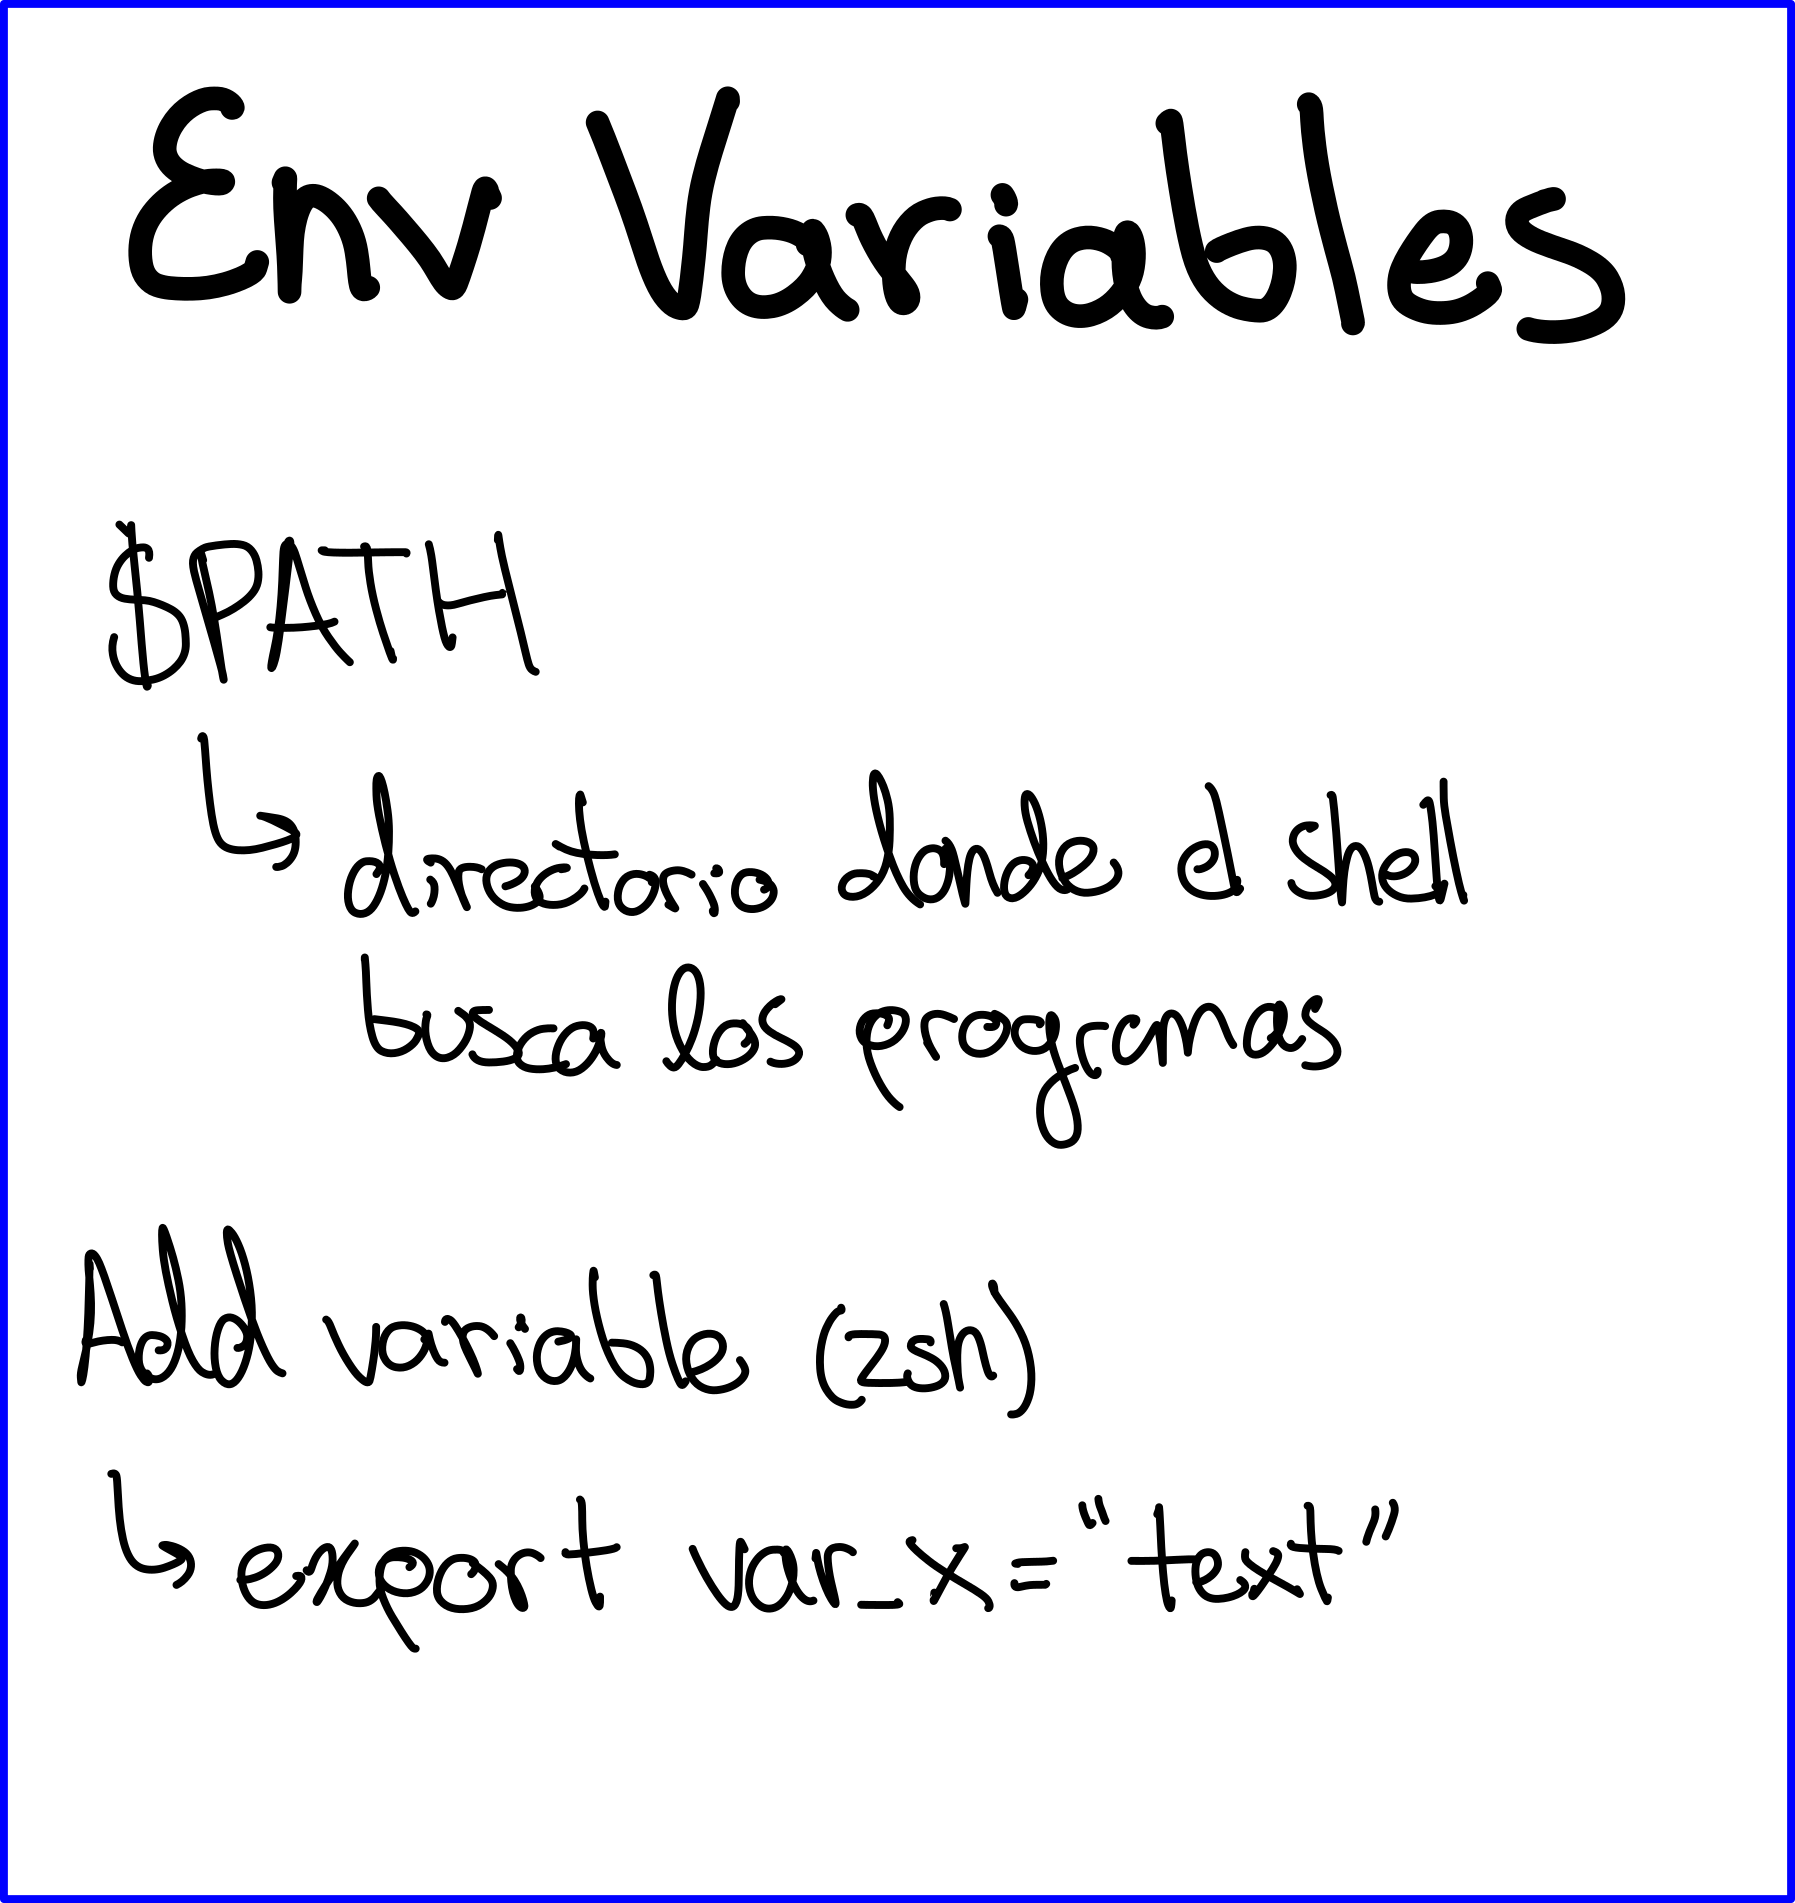 Env Variables
$PATH
↳ directorio donde el shell
busca los programas
Add variable (zsh)
↳ export var_x = "text"